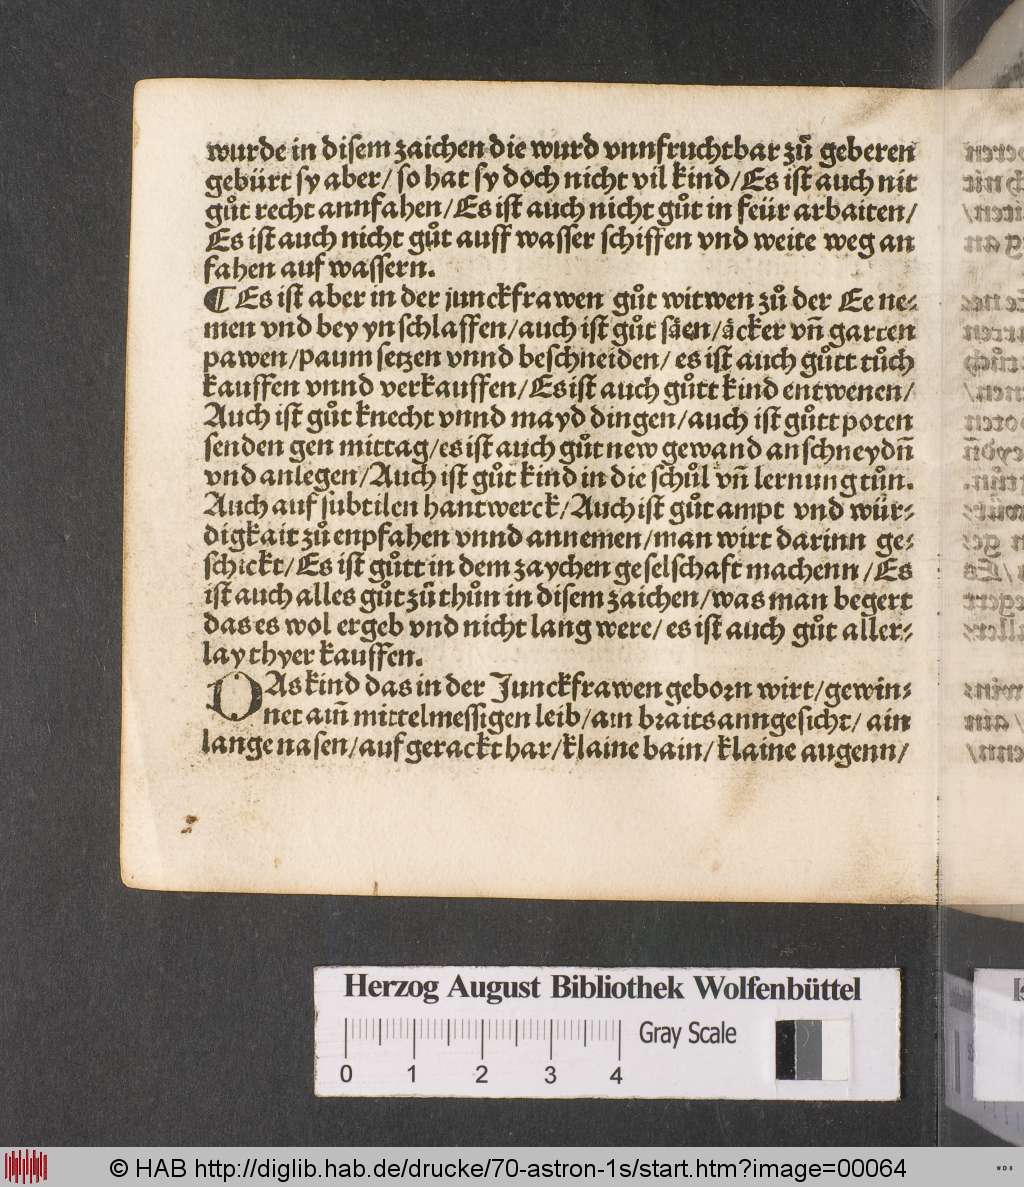 wurde in disem zaichen die wurd vnnfruchtbar zů geberen
gebürt sy aber/ so hat sy doch nicht vil kind/Es ist auch nit
gůt recht annfahen/Es ist auch nicht gůt in feür arbaiten/
Es ist auch nicht gůt auff wasser schiffen vnd weite weg an
fahen auf wassern.
¶ Es ist aber in der junckfrawen gůt witwen zů der Ee ne⸗
men vnd bey yn schlaffen/auch ist gůt säen/äcker vñ garten
pawen/paum setzen vnnd beschneiden/ es ist auch gůtt tůch
kauffen vnnd verkauffen/Es ist auch gůtt kind entwenen/
Auch ist gůt knecht vnnd mayd dingen/auch ist gůtt poten
senden gen mittag/es ist auch gůt new gewand anschneydñ
vnd anlegen/Auch ist gůt kind in die schůl vñ lernung tůn.
Auch auf subtilen hantwerck/Auch ist gůt ampt vnd wür⸗
digkait zů enpfahen vnnd annemen/man wirt darinn ge⸗
schickt/Es ist gůtt in dem zaychen geselschaft machenn/Es
ist auch alles gůt zů thůn in disem zaichen/was man begert
das es wol ergeb vnd nicht lang were/ es ist auch gůt aller⸗
lay thyer kauffen.
DAs kind das in der Junckfrawen geborn wirt/gewin⸗
net aiñ mittelmessigen leib/ain braits anngesicht/ ain
lange nasen/auf gerackt har/klaine bain/klaine augenn/
Herzog August Bibliothek Wolfenbüttel
Gray Scale
0 1 2 3 4
© HAB http://diglib.hab.de/drucke/70-astron-1s/start.htm?image=00064